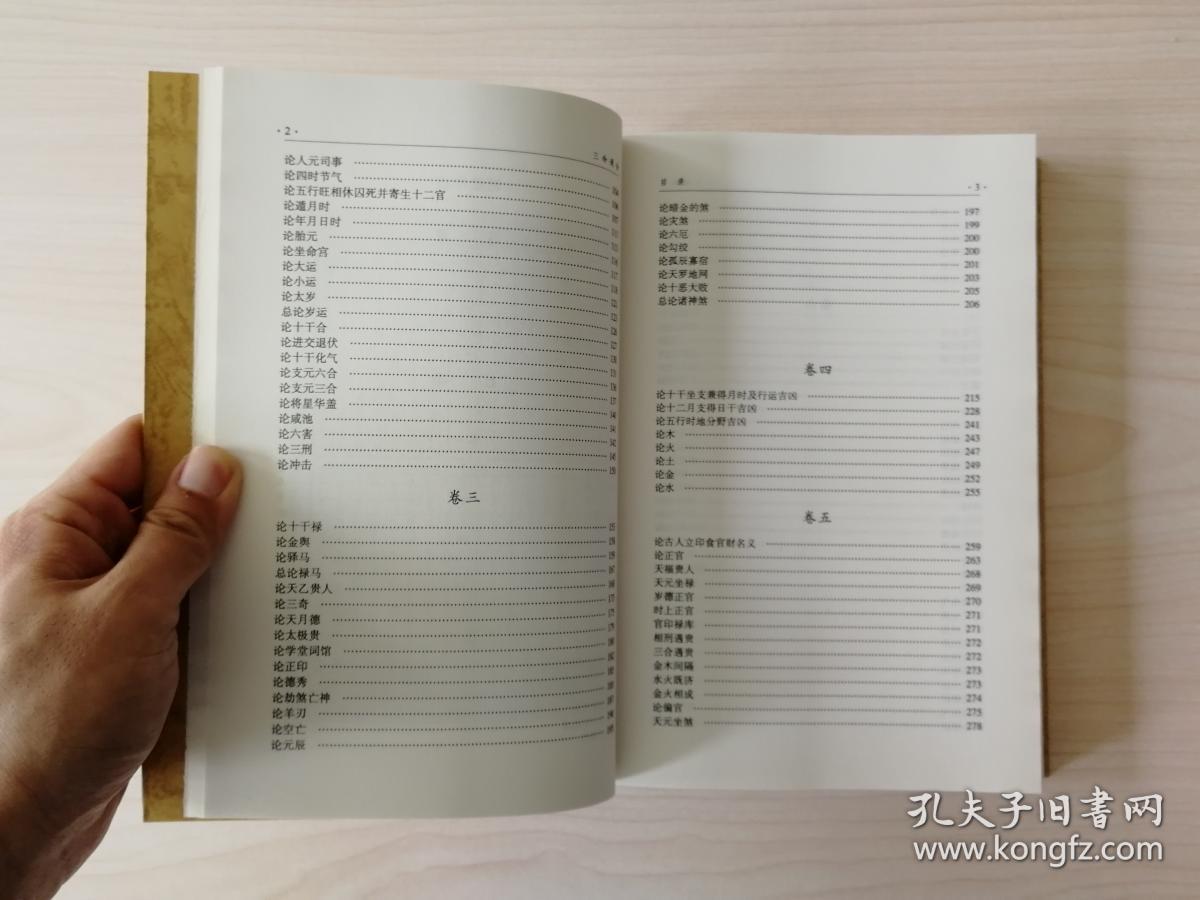 · 2 ·
三命通会
论人元司事
论四时节气 104
论五行旺相休囚死并寄生十二宫 106
论遁月时 107
论年月日时
论胎元
论坐命宫 116
论大运 117
论小运 118
论太岁
总论岁运
论十干合
论进交退伏 127
论十干化气
论支元六合
论支元三合
论将星华盖 137
论咸池 141
论六害 142
论三刑 145
论冲击
卷三
论十干禄
论金舆
论驿马 159
总论禄马 167
论天乙贵人 168
论三奇
论天月德 175
论太极贵 179
论学堂词馆 180
论正印 182
论德秀
论劫煞亡神
论羊刃 187
论空亡 190
论元辰 195
目 录
· 3 ·
论暗金的煞 197
论灾煞 199
论六厄 200
论勾绞 200
论孤辰寡宿 201
论天罗地网 203
论十恶大败 205
总论诸神煞 206
卷四
论十干坐支兼得月时及行运吉凶 215
论十二月支得日干吉凶 228
论五行时地分野吉凶 241
论木 243
论火 247
论土 249
论金 252
论水 255
卷五
论古人立印食官财名义 259
论正官 263
天福贵人 268
天元坐禄 269
岁德正官 270
时上正官 271
官印禄库 271
相刑遇贵 272
三合遇贵 272
金木间隔 273
水火既济 273
金火相成 274
论偏官 275
天元坐煞 278
孔夫子旧书网
www.kongfz.com